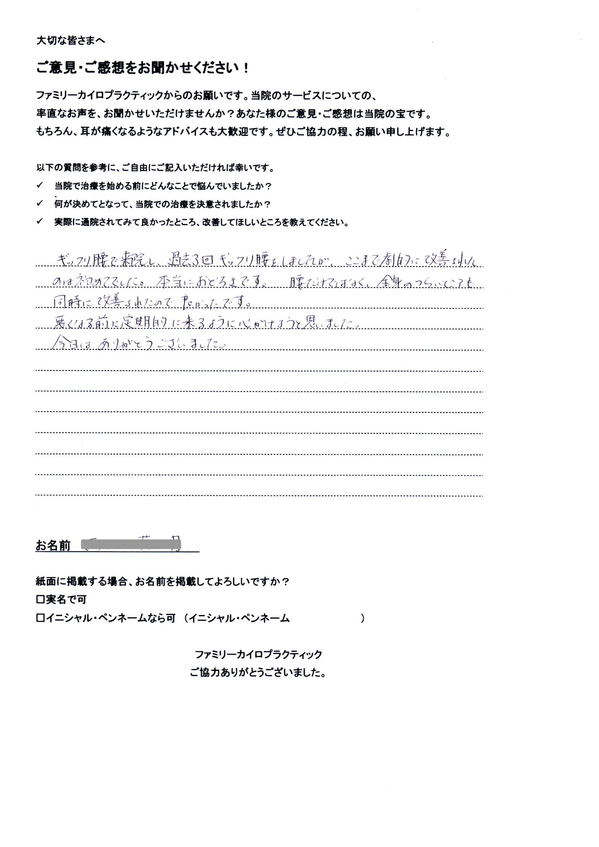 大切な皆さまへ
ご意見・ご感想をお聞かせください！
ファミリーカイロプラクティックからのお願いです。当院のサービスについての、
率直なお声を、お聞かせいただけませんか？あなた様のご意見・ご感想は当院の宝です。
もちろん、耳が痛くなるようなアドバイスも大歓迎です。ぜひご協力の程、お願い申し上げます。
以下の質問を参考に、ご自由にご記入いただければ幸いです。
✓ 当院で治療を始める前にどんなことで悩んでいましたか？
✓ 何が決めてとなって、当院での治療を決意されましたか？
✓ 実際に通院されてみて良かったところ、改善してほしいところを教えてください。
ギックリ腰で来院し、過去3回ギックリ腰をしましたが、ここまで劇的に改善された
のは初めてでした。本当におどろきです。腰だけではなく、全身のつらいところも
同時に改善されたので良かったです。
悪くなる前に定期的に来るように心がけようと思いました。
今日はありがとうございました。
お名前
紙面に掲載する場合、お名前を掲載してよろしいですか？
□実名で可
□イニシャル・ペンネームなら可 （イニシャル・ペンネーム ）
ファミリーカイロプラクティック
ご協力ありがとうございました。